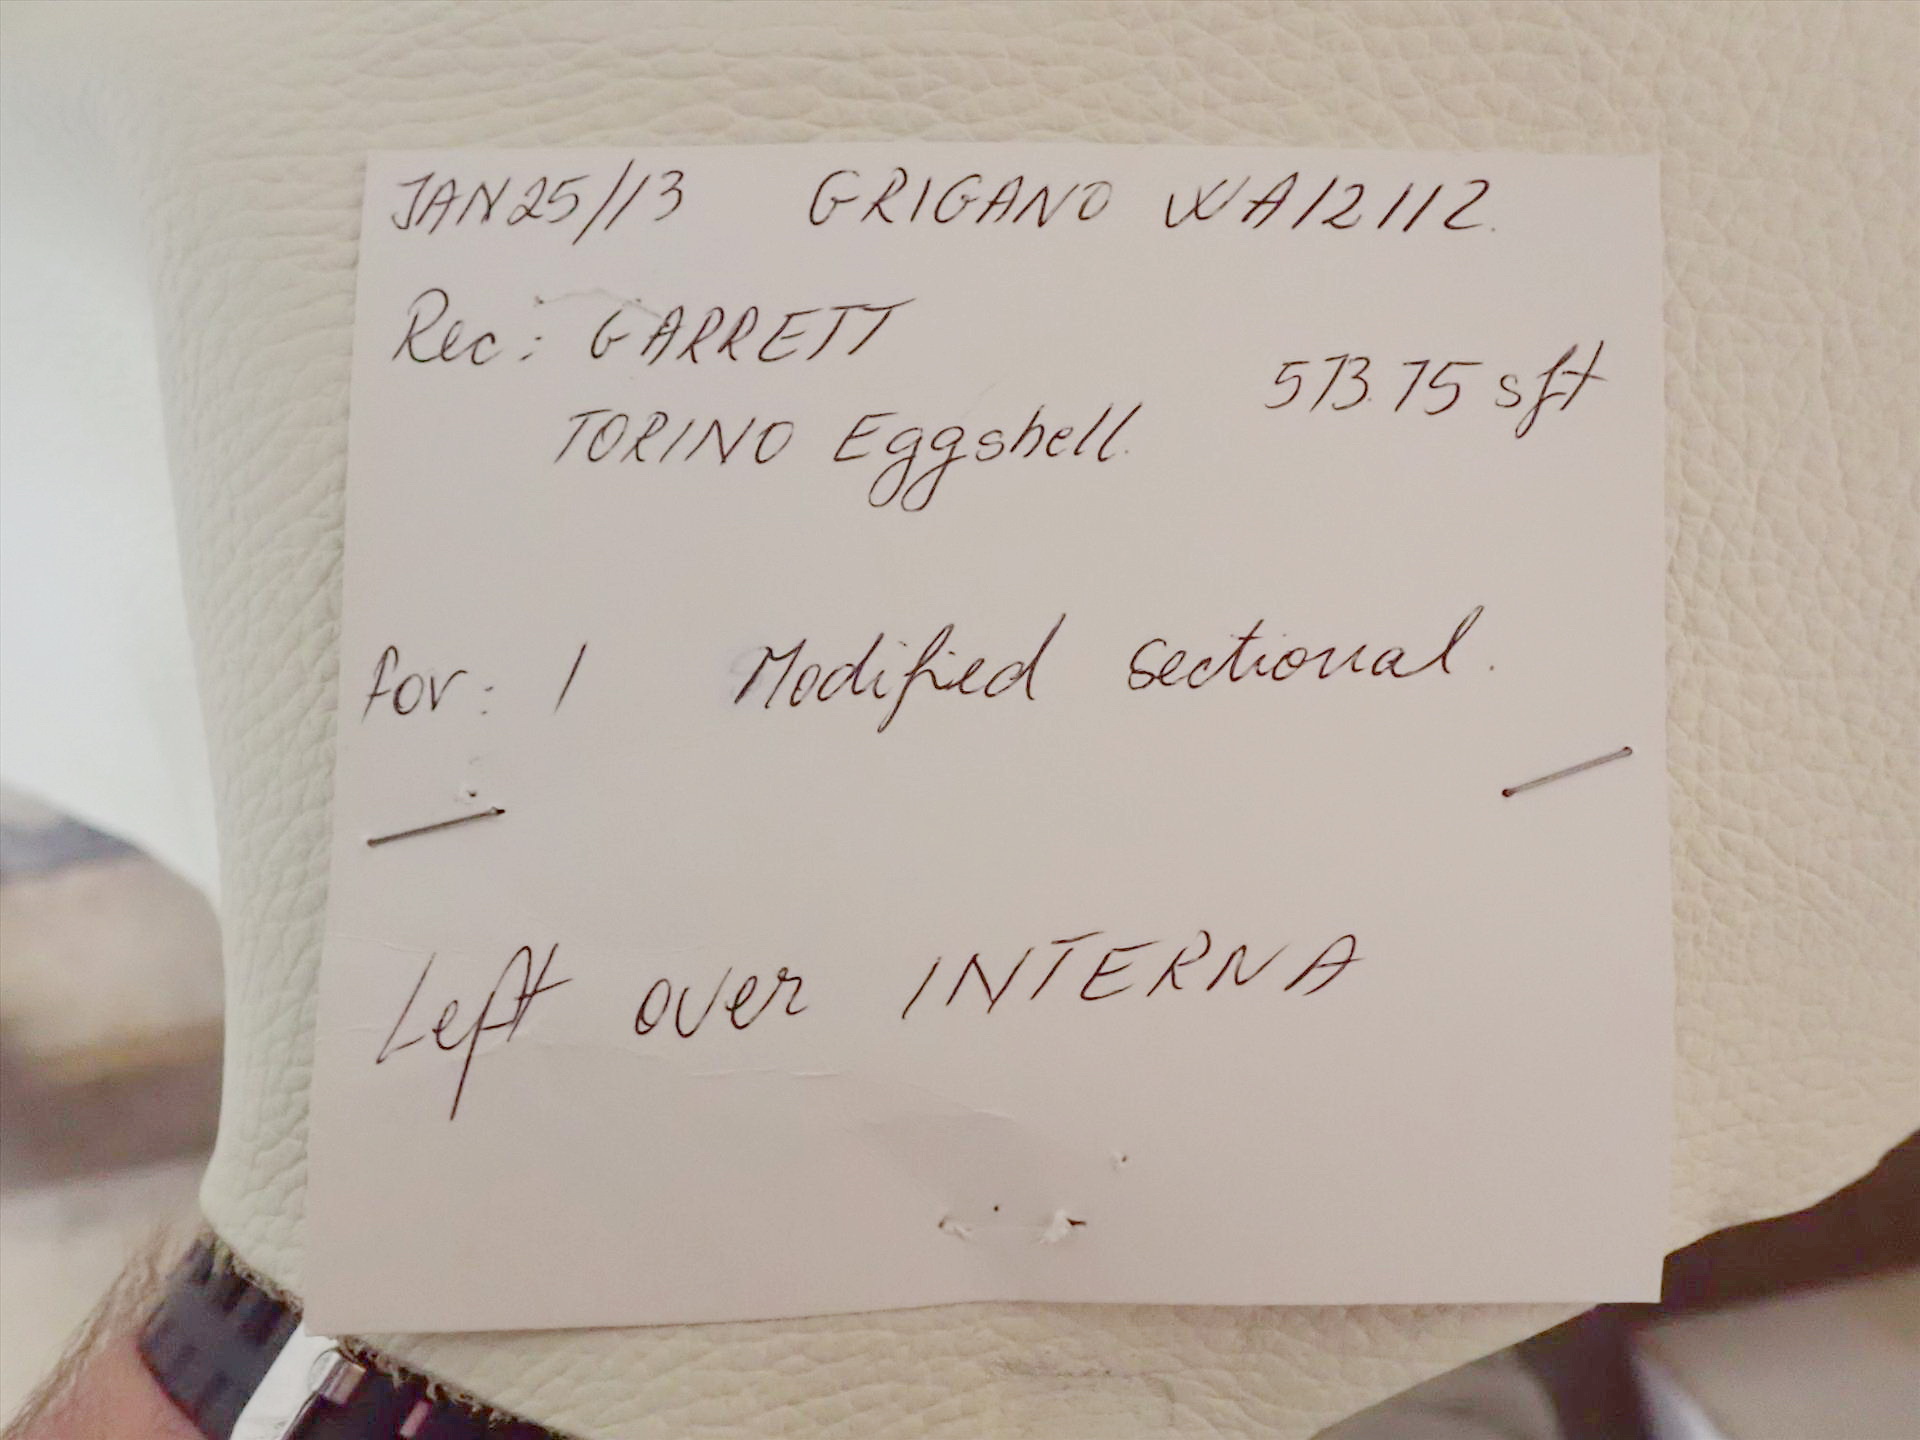 JAN 25/13 GRIGANO WA12112.
Rec: GARRETT
573.75 sft
TORINO Eggshell.
for: 1 Modified sectional.
Left over INTERNA